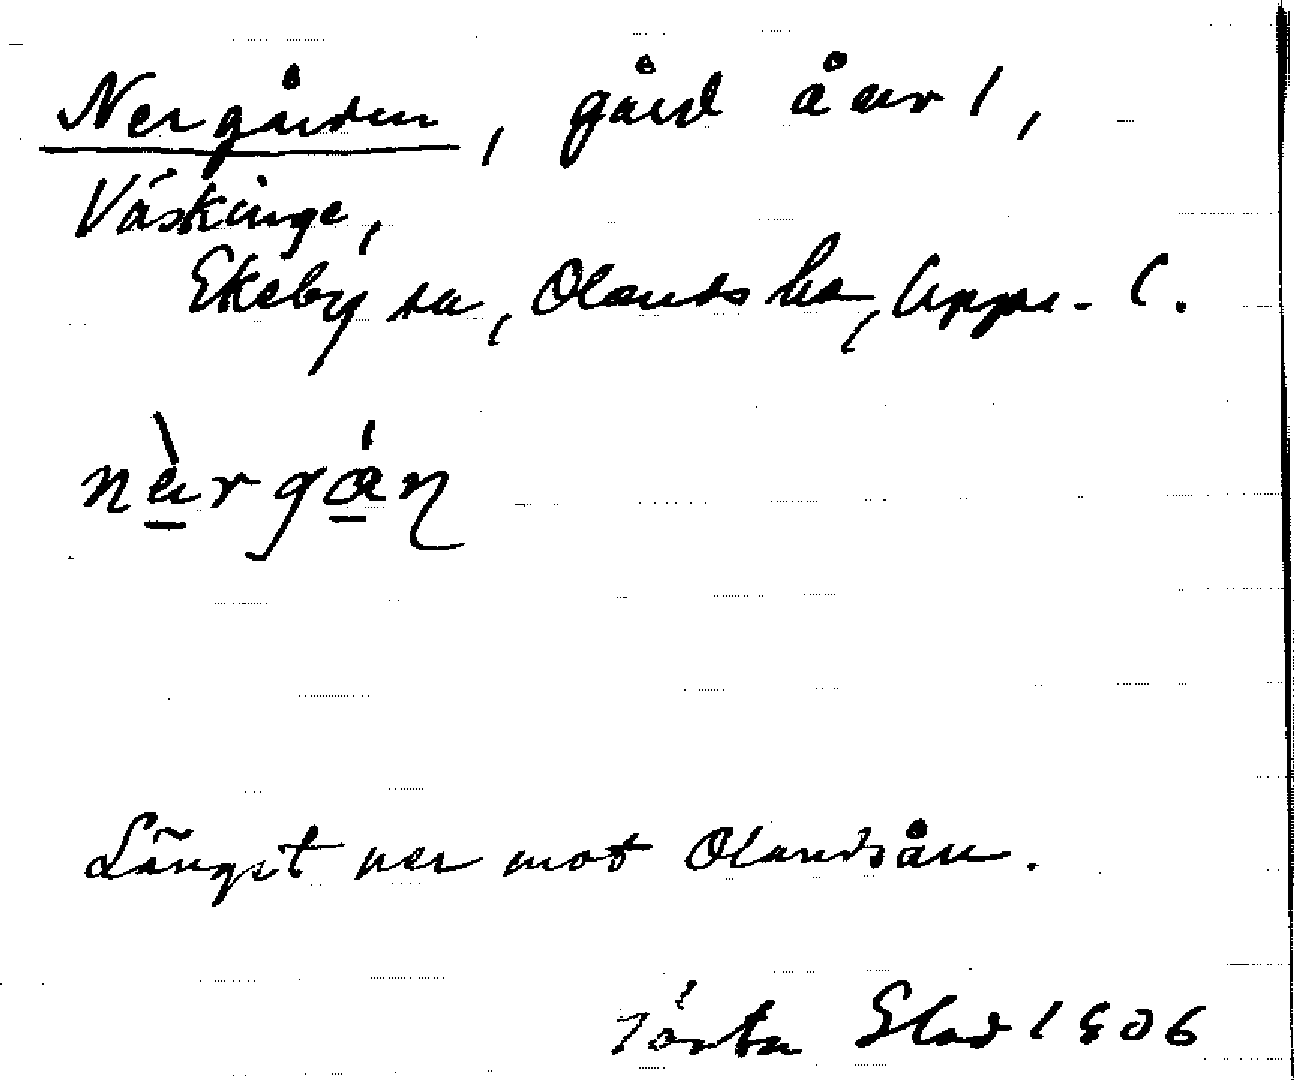 Nergården, gård å nr 1,
Väskinge,
Ekeby sn, Olands hd, Upps. l.
närgån
Längst ner mot Olandsån.
Elad 1906